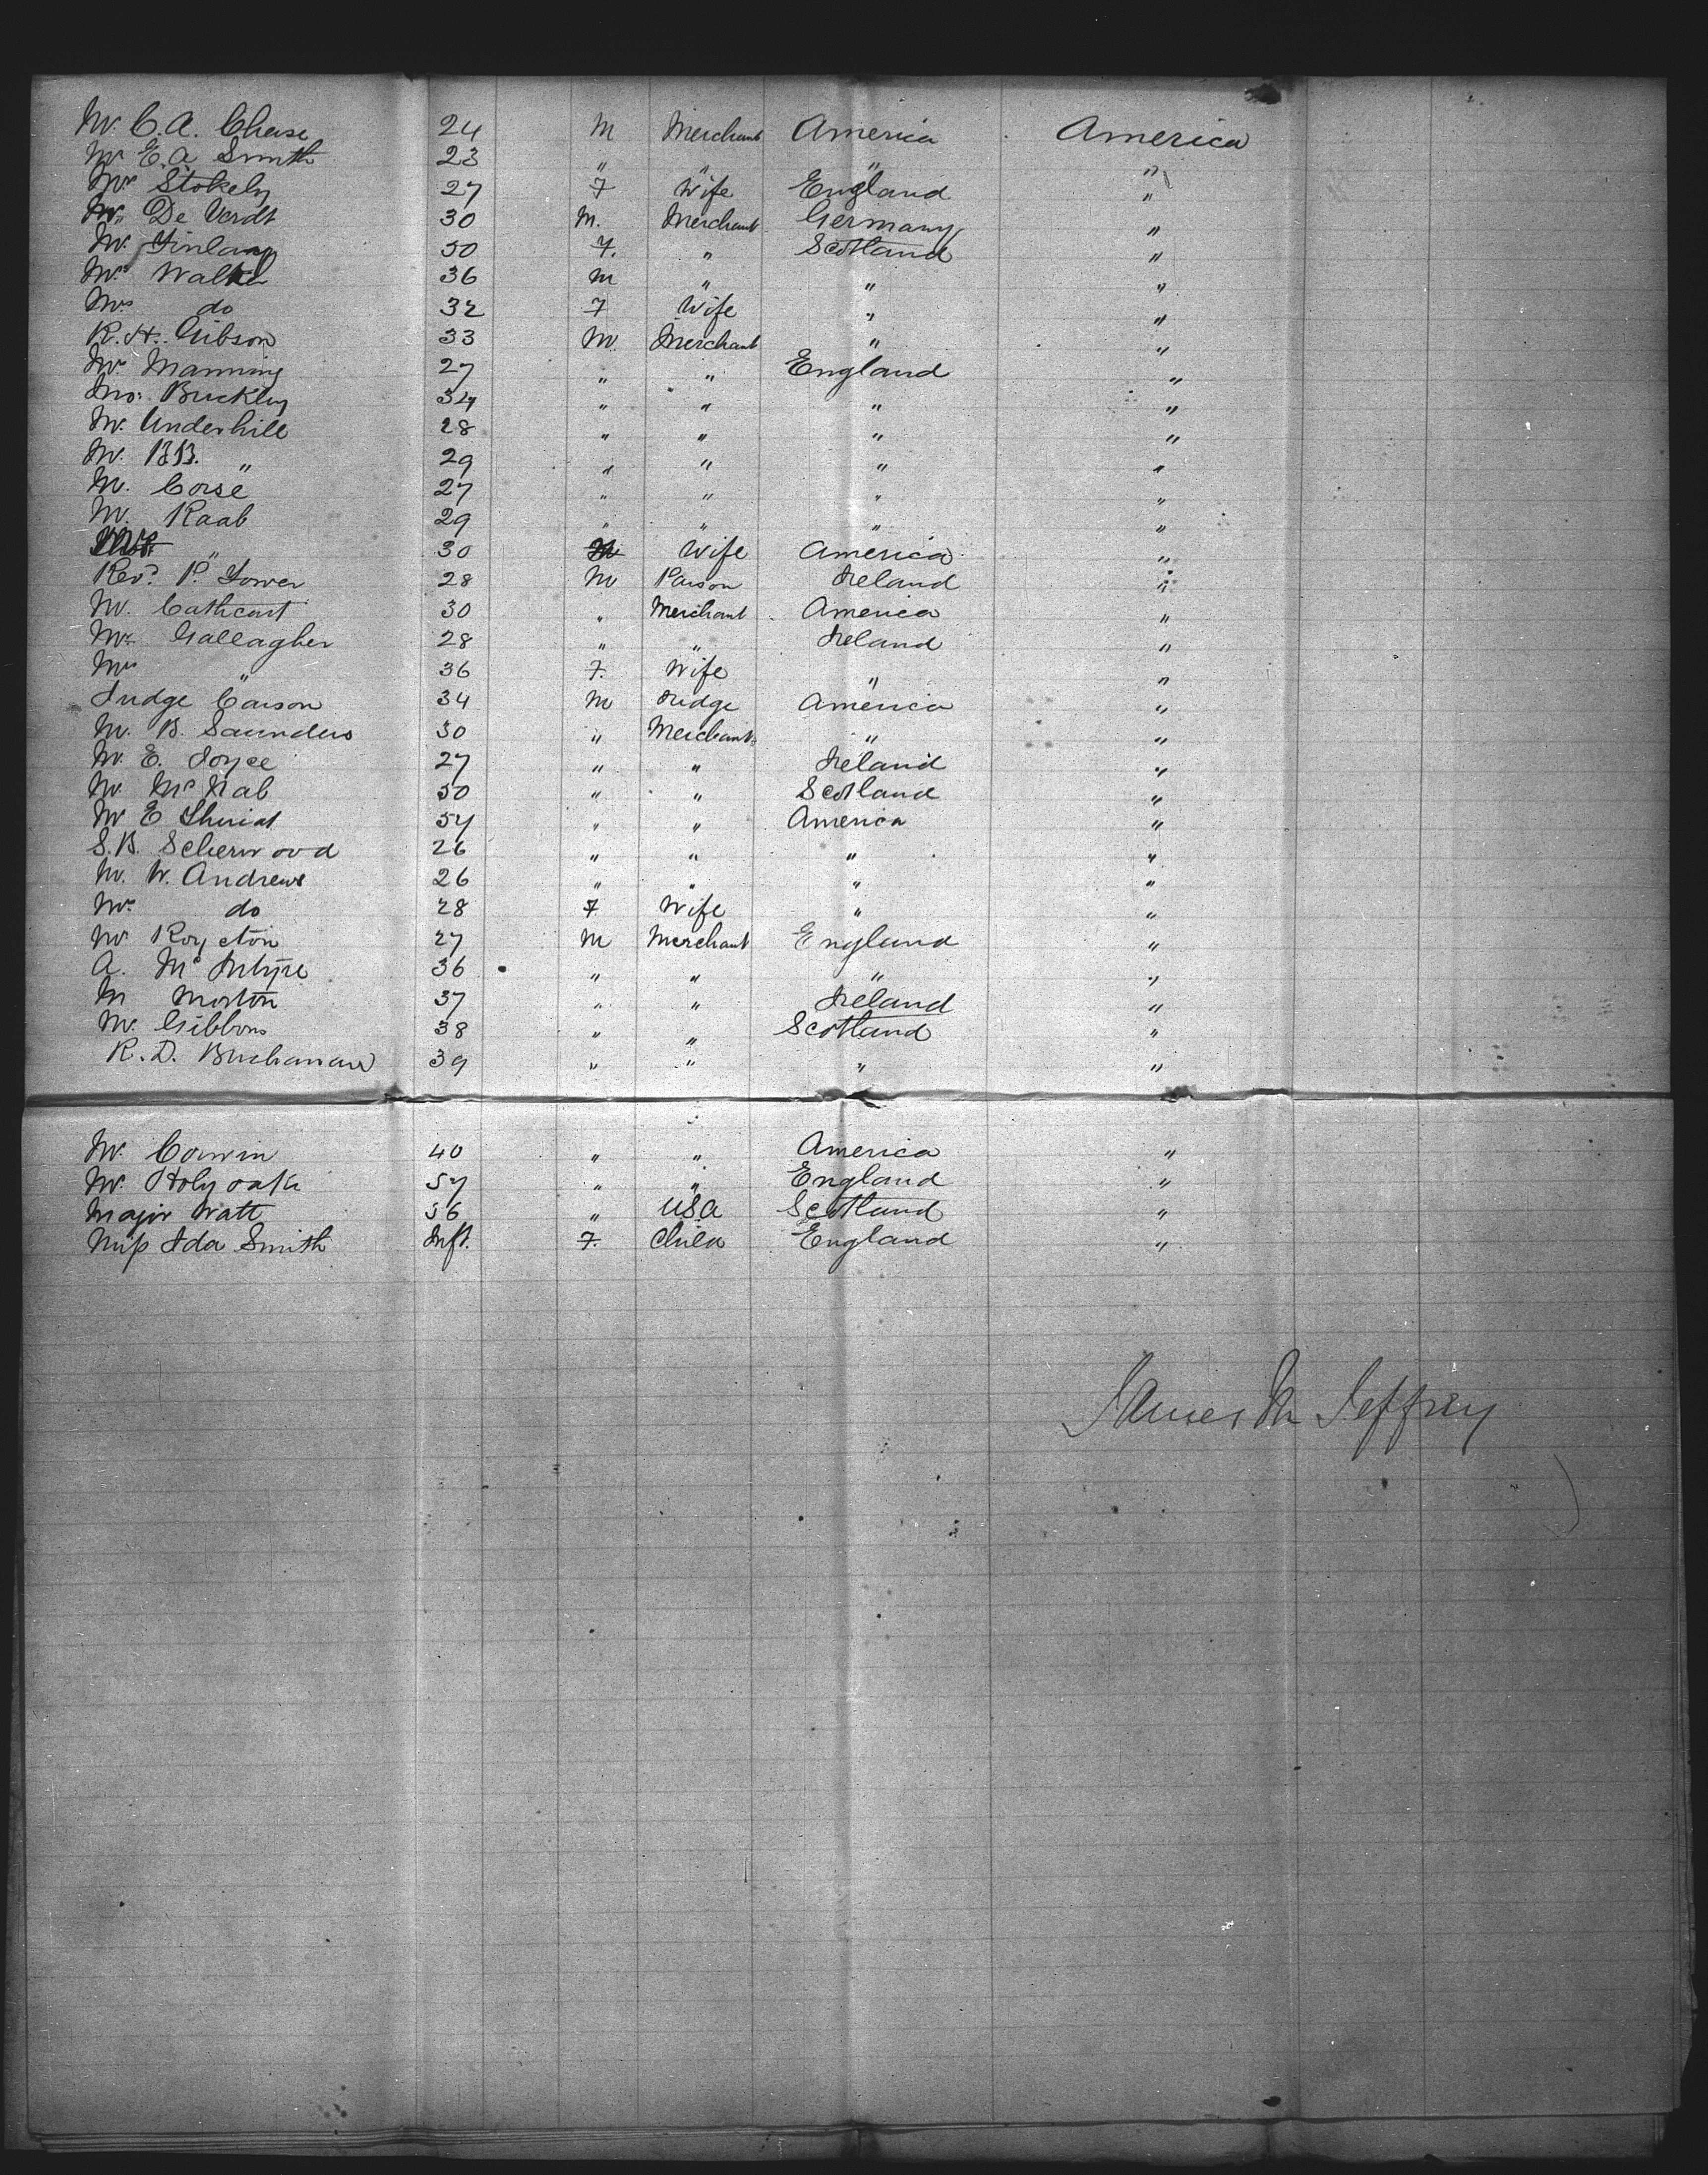 Mr. C. A. Chase 24 M Merchant America America
Mr E. A Smith 23 " " " "
Mrs Stokely 27 F Wife England "
Mr. De Verdt 30 M. Merchant Germany "
Mr. Finlay 50 F. " Scotland "
Mr. Walker 36 M " " "
Mrs do 32 F Wife " "
R. H. Gibson 33 M. Merchant " "
Mr Manning 27 " " England "
Jno. Buckley 34 " " " "
Mr. Underhill 28 " " " "
Mr. B.B. " 29 " " " "
Mr. Corse 27 " " " "
Mr. Raab 29 " " " "
" 30 Wife America "
Revd. P. Tower 28 M Parson Ireland "
Mr. Cathcart 30 " Merchant America "
Mr. Gallagher 28 " " Ireland "
Mrs " 36 F. Wife " "
Judge Carson 34 M Judge America "
Mr. B. Saunders 30 " Merchant " "
Mr. E. Joyce 27 " " Ireland "
Mr. McNab 50 " " Scotland "
Mr E 54 " " America "
S. B. Scherwood 26 " " " "
Mr. W. Andrews 26 " " " "
Mrs do 28 F Wife " "
Mr Royeton 27 M Merchant England "
A. McIntyre 36 " " " "
M Morton 37 " " Ireland "
Mr. Gibbons 38 " " Scotland "
R. D. Buchanan 39 " " " "
Mr. Corwin 40 " " America "
Mr. Holyoake 54 " " England "
Major Watt 56 " USA Scotland "
Miss Ida Smith Inft. F. Child England "
James M Jeffrey